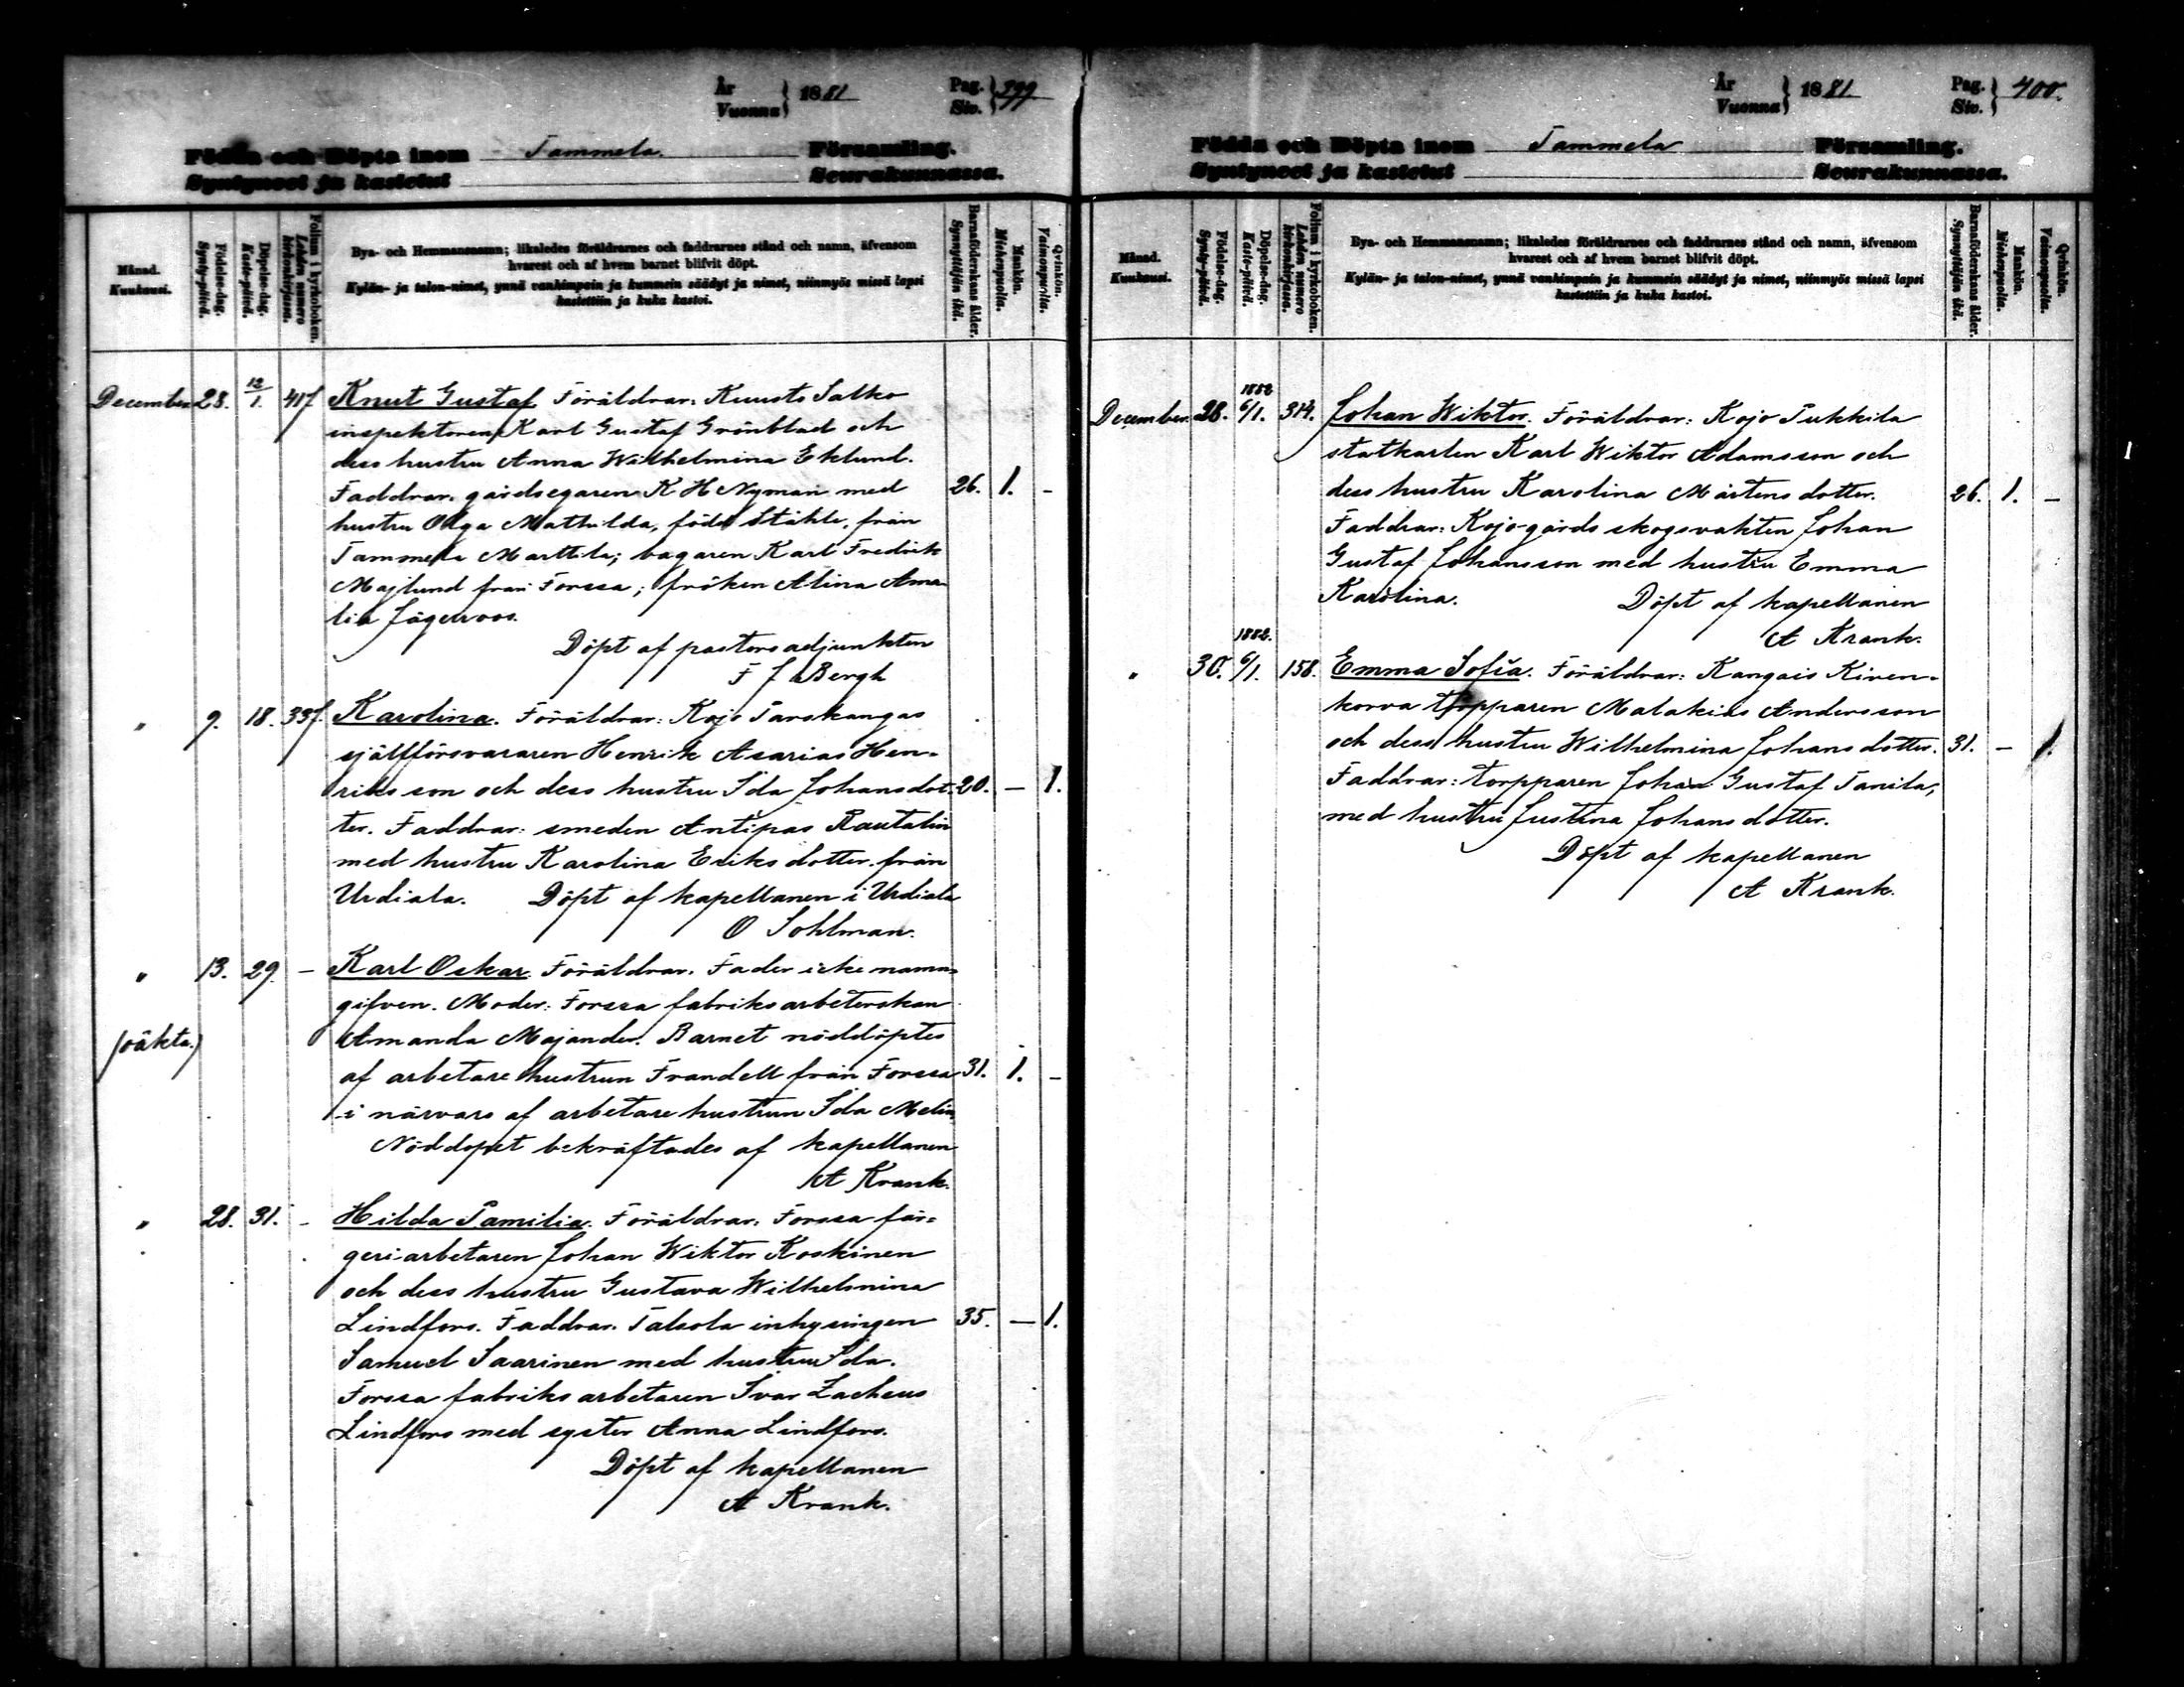 År
Vuonna } 1881
Pag.
Siv. } 399
Födda och Döpta inom Tammela. Församling.
Syntyneet ja kastetut Seurakunnassa.
Månad.
Kuukausi.
Födelse-dag.
Synty-päivä.
Döpelse-dag.
Kaste-päivä.
Folium i kyrkoboken.
Lehden numero kirkonkirjassa.
Bya- och Hemmansnamn; likaledes föräldrarnes och faddrarnes stånd och namn, äfvensom
hvarest och af hvem barnet blifvit döpt.
Kylän- ja talon-nimet, ynnä vanhimpain ja kummein säädyt ja nimet, niinmyös missä lapsi
kastettiin ja kuka kastoi.
Barnaföderskans ålder.
Synnyttäjän ikä.
Mankön.
Miehenpuolta.
Qvinkön.
Vaimonpuolta.
December 28. 12/1. 417 Knut Gustaf Föräldrar: Kuusto Salko
inspektoren Karl Gustaf Grönblad och
dess hustru Anna Wilhelmina Eklund.
Faddrar: gårdsegaren K H Nyman med 26. 1. -
hustru Olga Mathilda, född Ståhle, från
Tammela Marttila; bagaren Karl Fredrik
Majlund från Forssa; fröken Alina Ama-
lia Jägerroos.
Döpt af pastorsadjunkten
F J Bergh
" 9. 18. 337. Karolina. Föräldrar: Kojo Tarskangas
självförsvararen Henrik Asarias Hen-
riksson och dess hustru Ida Johansdot- 20. - 1.
ter. Faddrar: smeden Antipas Rautalin
med hustru Karolina Eriksdotter från
Urdiala. Döpt af kapellanen i Urdiala
O Sohlman.
" 13. 29. - Karl Oskar. Föräldrar. Fader icke namn-
gifven. Moder: Forssa fabriksarbeterskan
(oäkta.) Amanda Majander. Barnet nöddöptes
af arbetare hustrun Frandell från Forssa 31. 1. -
i närvaro af arbetare hustrun Ida Melin
Nöddopet bekräftades af kapellanen
A Krank.
" 28. 31. - Hilda Tamilia. Föräldrar: Forssa fär-
geriarbetaren Johan Wiktor Koskinen
och dess hustru Gustava Wilhelmina
Lindfors. Faddrar. Talsola inhysingen 35. - 1.
Samuel Saarinen med hustru Ida.
Forssa fabriksarbetaren Ivar Zacheus
Lindfors med syster Anna Lindfors.
Döpt af kapellanen
A Krank.
År
Vuonna } 1881
Pag.
Siv. } 400.
Födda och Döpta inom Tammela Församling.
Syntyneet ja kastetut Seurakunnassa.
Månad.
Kuukausi.
Födelse-dag.
Synty-päivä.
Döpelse-dag.
Kaste-päivä.
Folium i kyrkoboken.
Lehden numero kirkonkirjassa.
Bya- och Hemmansnamn; likaledes föräldrarnes och faddrarnes stånd och namn, äfvensom
hvarest och af hvem barnet blifvit döpt.
Kylän- ja talon-nimet, ynnä vanhimpain ja kummein säädyt ja nimet, niinmyös missä lapsi
kastettiin ja kuka kastoi.
Barnaföderskans ålder.
Synnyttäjän ikä.
Mankön.
Miehenpuolta.
Qvinkön.
Vaimonpuolta.
1882
December. 28. 6/1. 314. Johan Wiktor. Föräldrar: Kojo Pukkila
statkarlen Karl Wiktor Adamsson och
dess hustru Karolina Mårtensdotter. 26. 1. -
Faddrar: Kojo-gårds skogsvakten Johan
Gustaf Johansson med hustru Emma
Karolina. Döpt af kapellanen
A Krank.
1882.
" 30. 6/1. 158. Emma Sofia. Föräldrar: Kangais Kiven-
korva torpparen Malakias Andersson
och dess hustru Wilhelmina Johansdotter. 31. - 1.
Faddrar: torpparen Johan Gustaf Tanila,
med hustru Justina Johansdotter.
Döpt af kapellanen
A Krank.